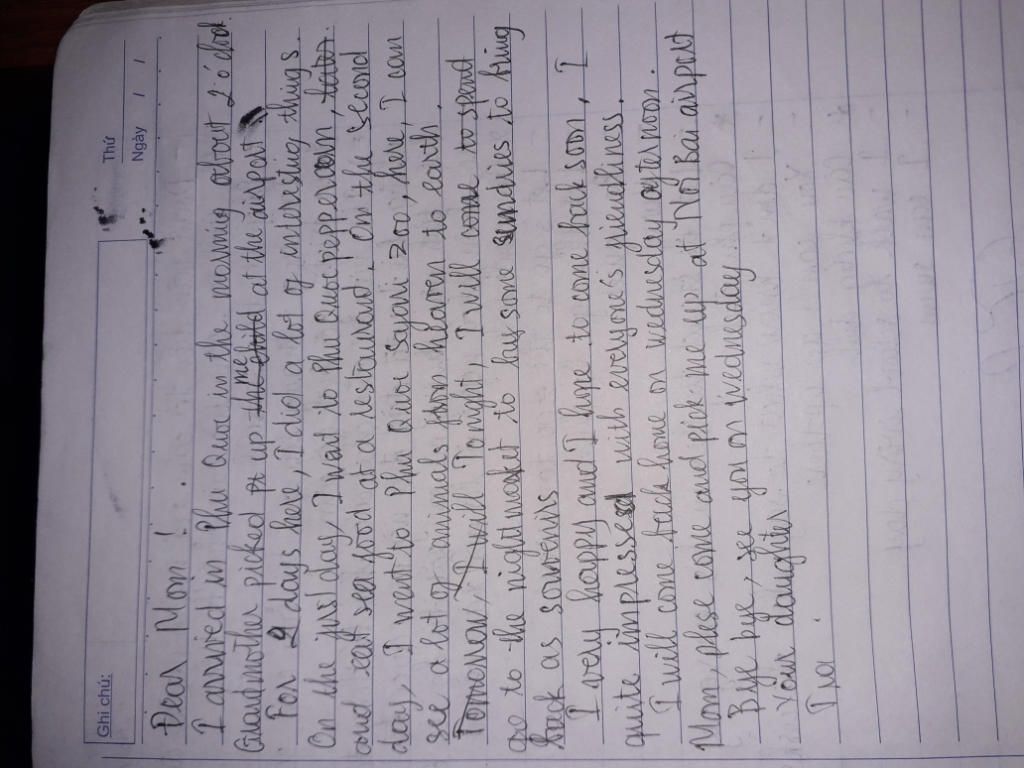 Ghi chú:
Thứ
Ngày / /
Dear Mom!
I arrwired in Phu Quoc in the morning about 2 o'clock
Grandmother picked up me at the airport.
For 2 days here, I did a lot of interesting things.
On the first day, I want to Phu Quoc pepper
and eat sea food at a restaurand. On the second
day, I went to Phu Quoc Safari zoo, here, I can
see a lot of animals from heaven to earth.
Tonight, I will
go to the night market to buy some sundries to bring
back as souvenirs
I very happy and I hope to come back soon, I
quite impressed with everyone's friendliness.
I will come back home on wednesday afternoon.
Mom, please come and pick me up at Noi Bai airport
Bye bye, see you on Wednesday
Your daughter.
Tra.